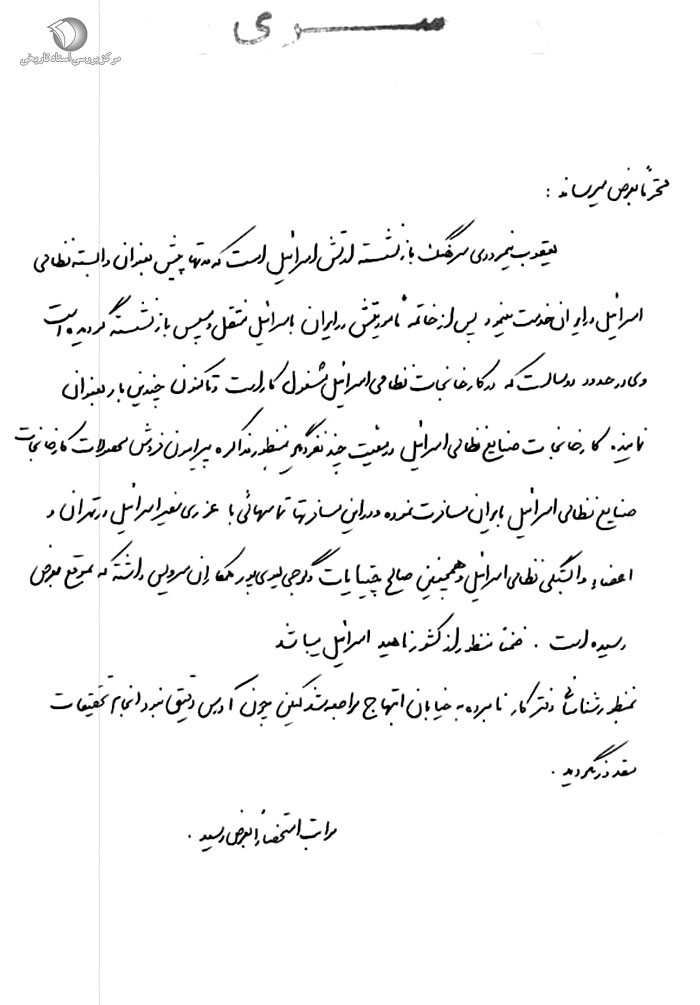 سری
مرکز بررسی اسناد تاریخی
محترماً بعرض میرساند :
یعقوب نیمرودی سرهنگ بازنشسته ارتش اسرائیل است که مدتها پیش بعنوان وابسته نظامی
اسرائیل در ایران خدمت مینمود پس از خاتمه ماموریتش در ایران باسرائیل منتقل و سپس بازنشسته گردیده است
وی در حدود دو سال است که در کارخانجات نظامی اسرائیل مشغول کار است و تاکنون چندین بار بعنوان
نماینده کارخانجات صنایع نظامی اسرائیل در معیت چند نفر دیگر بمنظور مذاکره پیرامون فروش محصولات کارخانجات
صنایع نظامی اسرائیل بایران مسافرت نموده و در این مسافرتها تماسهائی با عزری سفیر اسرائیل در تهران و
اعضاء وابستگی نظامی اسرائیل و همچنین صالح چیتایات و لوی پور همکاران سرویس داشته که بموقع بعرض
رسیده است . ضمناً منظور از کشور ناهید اسرائیل میباشد
بمنظور شناسائی دفتر کار نامبرده به خیابان ابتهاج مراجعه شد لکن چون آدرس دقیق نبود انجام تحقیقات
مقدور نگردید .
مراتب استحضاراً بعرض رسید .